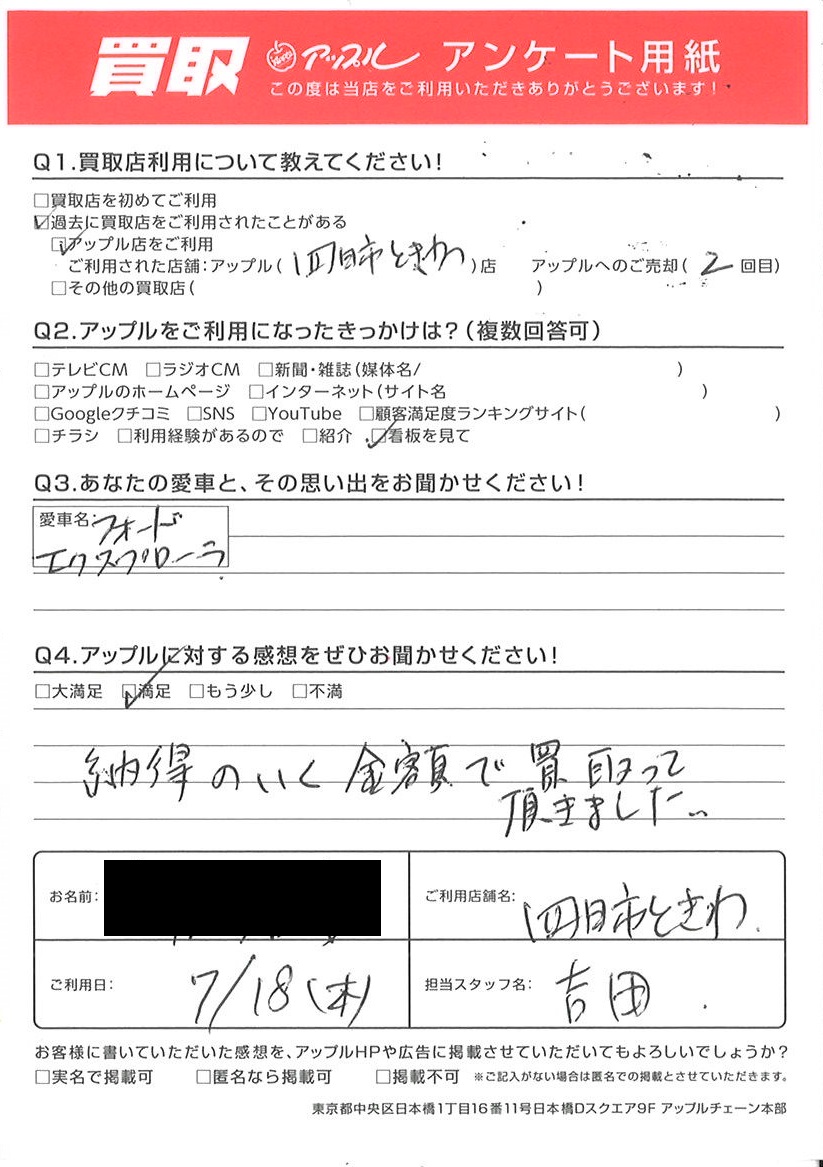 買取 アップル アンケート用紙
この度は当店をご利用いただきありがとうございます!
Q1.買取店利用について教えてください!
□買取店を初めてご利用
☑過去に買取店をご利用されたことがある
☑アップル店をご利用
ご利用された店舗:アップル(四日市ときわ)店 アップルへのご売却(2回目)
□その他の買取店( )
Q2.アップルをご利用になったきっかけは?(複数回答可)
□テレビCM □ラジオCM □新聞・雑誌(媒体名/ )
□アップルのホームページ □インターネット(サイト名 )
□Googleクチコミ □SNS □YouTube □顧客満足度ランキングサイト( )
□チラシ □利用経験があるので □紹介 ☑看板を見て
Q3.あなたの愛車と、その思い出をお聞かせください!
愛車名:フォード
エクスプローラ
Q4.アップルに対する感想をぜひお聞かせください!
□大満足 ☑満足 □もう少し □不満
納得のいく金額で買取って
頂きました。
お名前:
ご利用店舗名: 四日市ときわ
ご利用日: 7/18(木)
担当スタッフ名: 吉田
お客様に書いていただいた感想を、アップルHPや広告に掲載させていただいてもよろしいでしょうか?
□実名で掲載可 □匿名なら掲載可 □掲載不可 ※ご記入がない場合は匿名での掲載とさせていただきます。
東京都中央区日本橋1丁目16番11号日本橋Dスクエア9F アップルチェーン本部